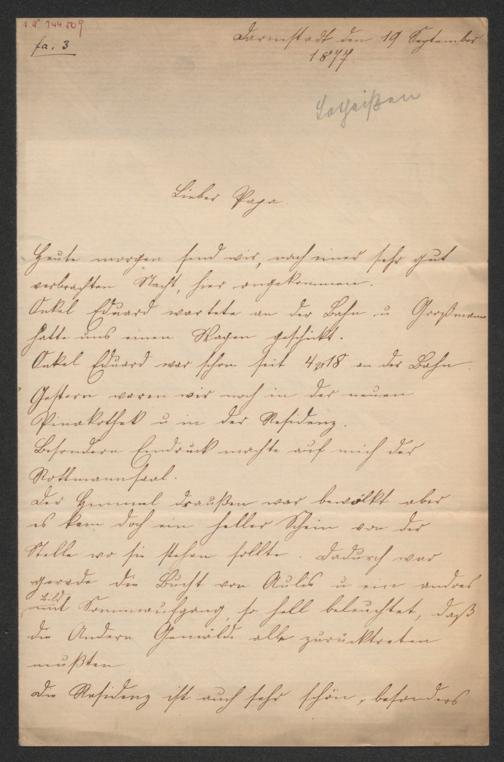 fa. 3
Darmstadt den 19 September
1877
Lotheißen
Lieber Papa
Heute morgen sind wir, nach einer sehr gut
verbrachten Nacht, hier angekommen.
Onkel Eduard wartete an der Bahn u Großmama
hatte uns einen Wagen geschickt.
Onkel Eduard war schon seit 4 18 an der Bahn.
Gestern waren wir noch in der neuen
Pinakothek u in der Residenz.
Besondern Eindruck machte auf mich der
Rottmannsaal.
Der Himmel draußen war bewölkt aber
es kam doch ein heller Schein von der
Stelle wo sie stehen sollte. Dadurch war
gerade die Bucht von Aulis u ein andres
Bild
mit Sonnenaufgang, so hell beleuchtet, daß
die Andern Gemälde alle zurücktreten
mußten
Die Residenz ist auch sehr schön, besonders